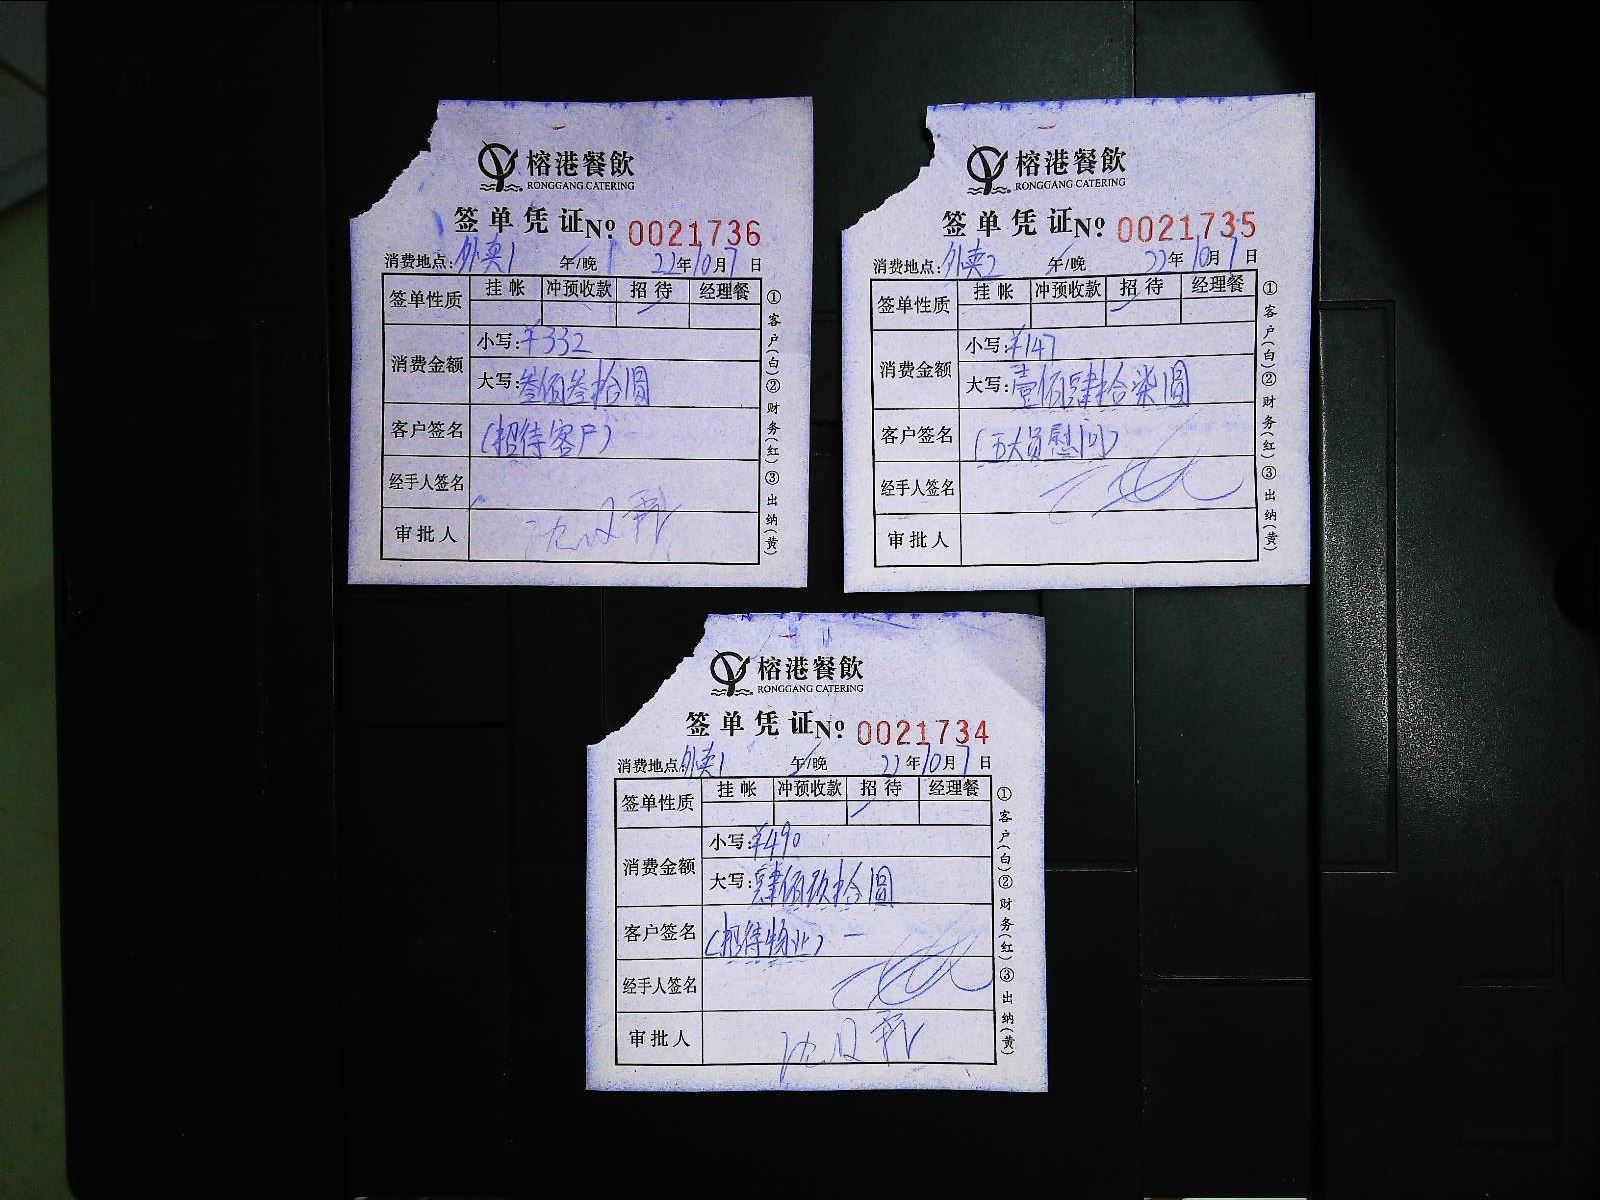 榕港餐飲
RONGGANG CATERING
签单凭证 Nº 0021736
消费地点:外卖1 午/晚 22年10月7日
签单性质 挂帐 冲预收款 招待 经理餐
消费金额 小写:¥332
大写:叁佰叁拾圆
客户签名 (招待客户)
经手人签名
审批人
①客户(白)②财务(红)③出纳(黄)
榕港餐飲
RONGGANG CATERING
签单凭证 Nº 0021735
消费地点:外卖2 午/晚 22年10月7日
签单性质 挂帐 冲预收款 招待 经理餐
消费金额 小写:¥147
大写:壹佰肆拾柒圆
客户签名 (五大员慰问)
经手人签名
审批人
①客户(白)②财务(红)③出纳(黄)
榕港餐飲
RONGGANG CATERING
签单凭证 Nº 0021734
消费地点:外卖1 午/晚 22年10月7日
签单性质 挂帐 冲预收款 招待 经理餐
消费金额 小写:¥490
大写:肆佰玖拾圆
客户签名 (招待物业)
经手人签名
审批人
①客户(白)②财务(红)③出纳(黄)